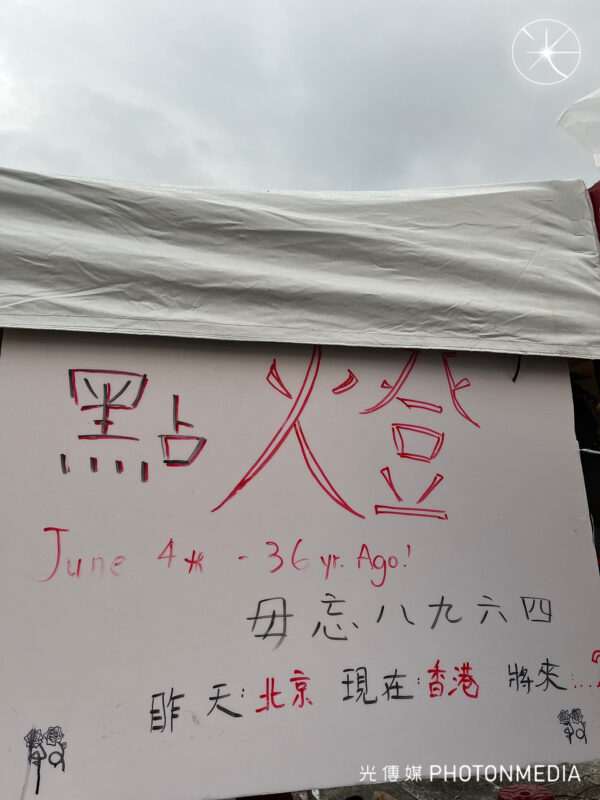 點燈
June 4th - 36 yr. Ago!
毋忘八九六四
昨天:北京 現在:香港 將來:...?
光傳媒 PHOTONMEDIA